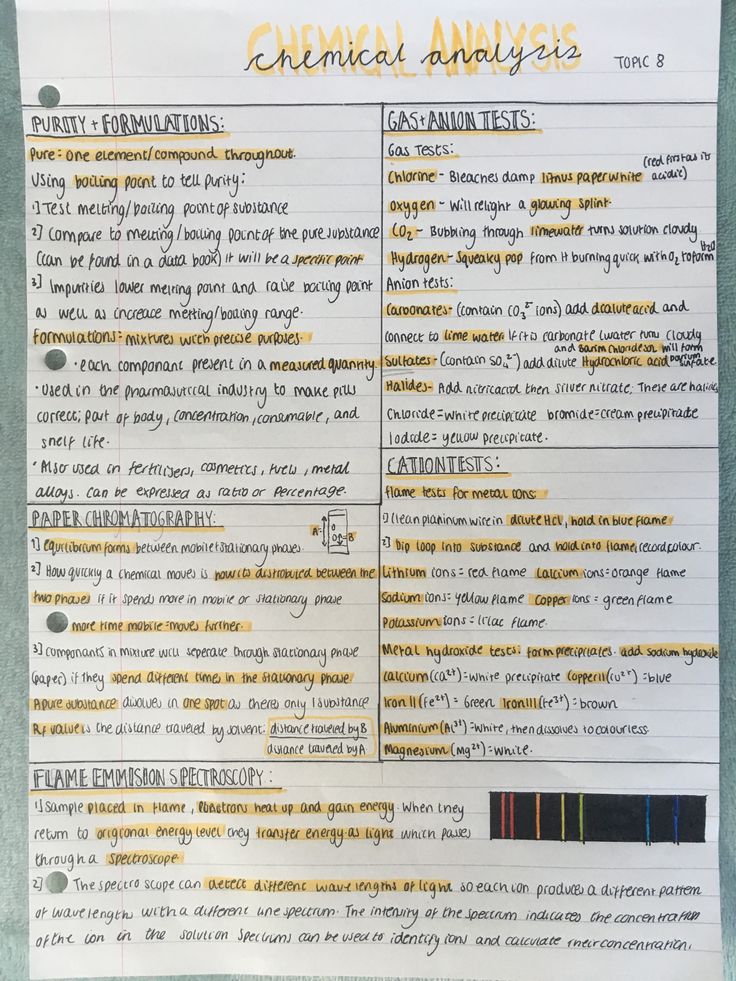 CHEMICAL ANALYSIS
chemical analysis
TOPIC 8
PURITY + FORMULATIONS:
Pure = one element/compound throughout.
Using boiling point to tell purity:
1] Test melting/boiling point of substance
2] Compare to melting/boiling point of the pure substance
(can be found in a data book) it will be a specific point
3] Impurities lower melting point and raise boiling point
as well as increace melting/boiling range.
Formulations = mixtures with precise purposes.
• each componant present in a measured quantity.
• Used in the pharmasutical industry to make pills
correct; part of body, concentration, consumable, and
shelf life.
• Also used in fertilisers, cosmetics, fuels, metal
alloys. can be expressed as ratio or percentage.
PAPER CHROMATOGRAPHY:
A=
=B
1] equilibrium forms between mobile + stationary phases.
2] How quickly a chemical moves is how its distributed between the
two phases if it spends more in mobile or stationary phase
more time mobile = moves further.
3] componants in mixture will seperate through stationary phase
(paper) if they spend different times in the stationary phase.
A pure substance disolves in one spot as theres only 1 substance
Rf value is the distance traveled by solvent:
distance traveled by B
distance traveled by A
GAS + ANION TESTS:
Gas Tests:
(red first as its
Chlorine - Bleaches damp litmus paper white acidic)
Oxygen - Will relight a glowing splint.
CO2 - Bubbling through limewater turns solution cloudy
H2O
Hydrogen - Squeaky pop from it burning quick with O2 to form
Anion tests:
Carbonates - (contain CO3²⁻ ions) add dilute acid and
connect to lime water. If it is carbonate (water turns cloudy
and barium chloride sol will form
Sulfates - (contain SO4²⁻) add dilute Hydrochloric acid barium sulfate
Halides - Add nitric acid then silver nitrate; These are halides
Chloride = white precipitate bromide = cream precipitate
Iodide = yellow precipitate.
CATION TESTS:
flame tests for metal ions:
1] Clean platinum wire in dilute HCl, hold in blue flame
2] Dip loop into substance and hold into flame, record colour.
Lithium ions = red flame Calcium ions = orange flame
Sodium ions = yellow flame Copper ions = green flame
Potassium ions = lilac flame.
Metal hydroxide tests: form precipitates. add sodium hydroxide
Calcium (Ca²⁺) = white precipitate Copper II (Cu²⁺) = blue
Iron II (Fe²⁺) = Green Iron III (Fe³⁺) = brown
Aluminium (Al³⁺) = white, then dissolves to colourless.
Magnesium (Mg²⁺) = white.
FLAME EMMISION SPECTROSCOPY:
1] Sample placed in flame, electrons heat up and gain energy. When they
return to origional energy level they transfer energy as light which passes
through a spectroscope
2] The spectroscope can detect different wavelengths of light so each ion produces a different pattern
of wavelengths with a different line spectrum. The intensity of the spectrum indicates the concentration
of the ion in the solution Spectrums can be used to identify ions and calculate their concentration.